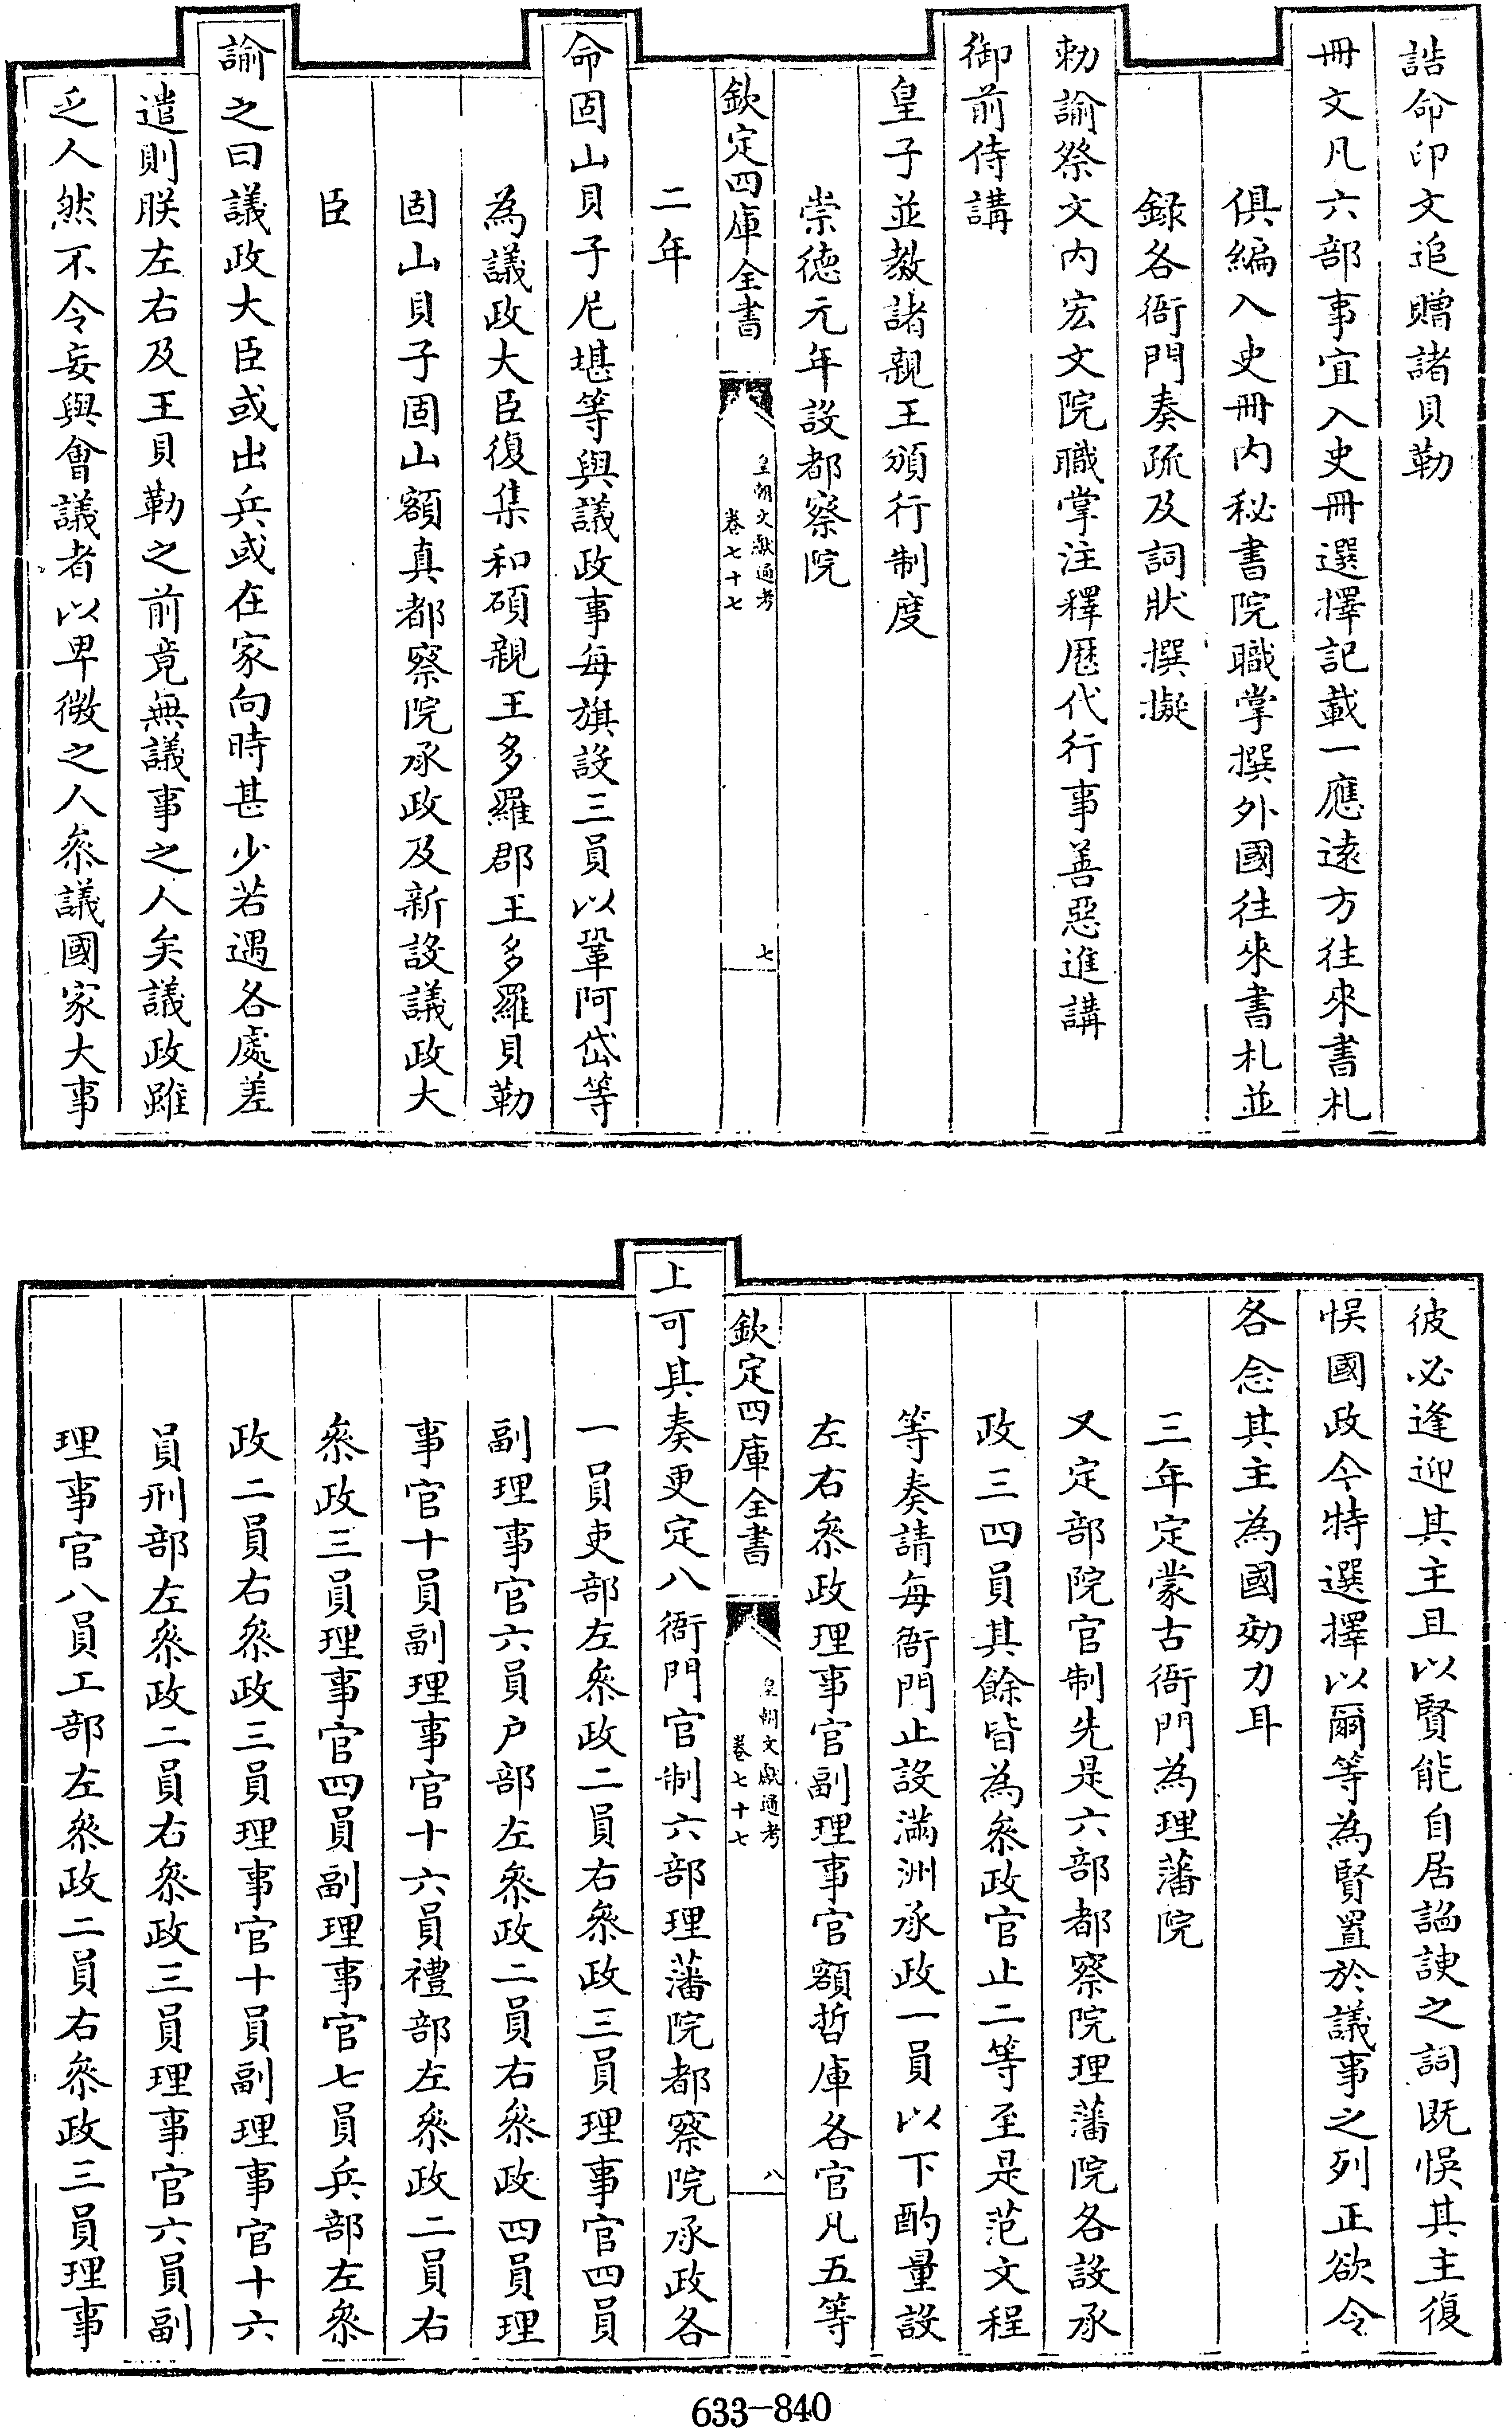 誥命印文追贈諸貝勒
冊文凡六部事宜入史冊選擇記載一應遠方往來書札
俱編入史冊内秘書院職掌撰外國往來書札並
録各衙門奏疏及詞狀撰擬
勅諭祭文内宏文院職掌注釋歷代行事善惡進講
御前侍講
皇子並教諸親王頒行制度
崇徳元年設都察院
欽定四庫全書
皇朝文獻通考
卷七十七
七
二年
命固山貝子尼堪等與議政事每旗設三員以鞏阿岱等
為議政大臣復集和碩親王多羅郡王多羅貝勒
固山貝子固山額真都察院承政及新設議政大
臣
諭之曰議政大臣或出兵或在家向時甚少若遇各處差
遣則朕左右及王貝勒之前竟無議事之人矣議政雖
乏人然不令妄與會議者以卑微之人叅議國家大事
彼必逢迎其主且以賢能自居謟諛之詞既悞其主復
悞國政今特選擇以爾等為賢置於議事之列正欲令
各念其主為國効力耳
三年定蒙古衙門為理藩院
又定部院官制先是六部都察院理藩院各設承
政三四員其餘皆為叅政官止二等至是范文程
等奏請每衙門止設滿洲承政一員以下酌量設
左右叅政理事官副理事官額哲庫各官凡五等
欽定四庫全書
皇朝文獻通考
卷七十七
八
上可其奏更定八衙門官制六部理藩院都察院承政各
一員吏部左叅政二員右叅政三員理事官四員
副理事官六員户部左叅政二員右叅政四員理
事官十員副理事官十六員禮部左叅政二員右
叅政三員理事官四員副理事官七員兵部左叅
政二員右叅政三員理事官十員副理事官十六
員刑部左叅政二員右叅政三員理事官六員副
理事官八員工部左叅政二員右叅政三員理事
633-840